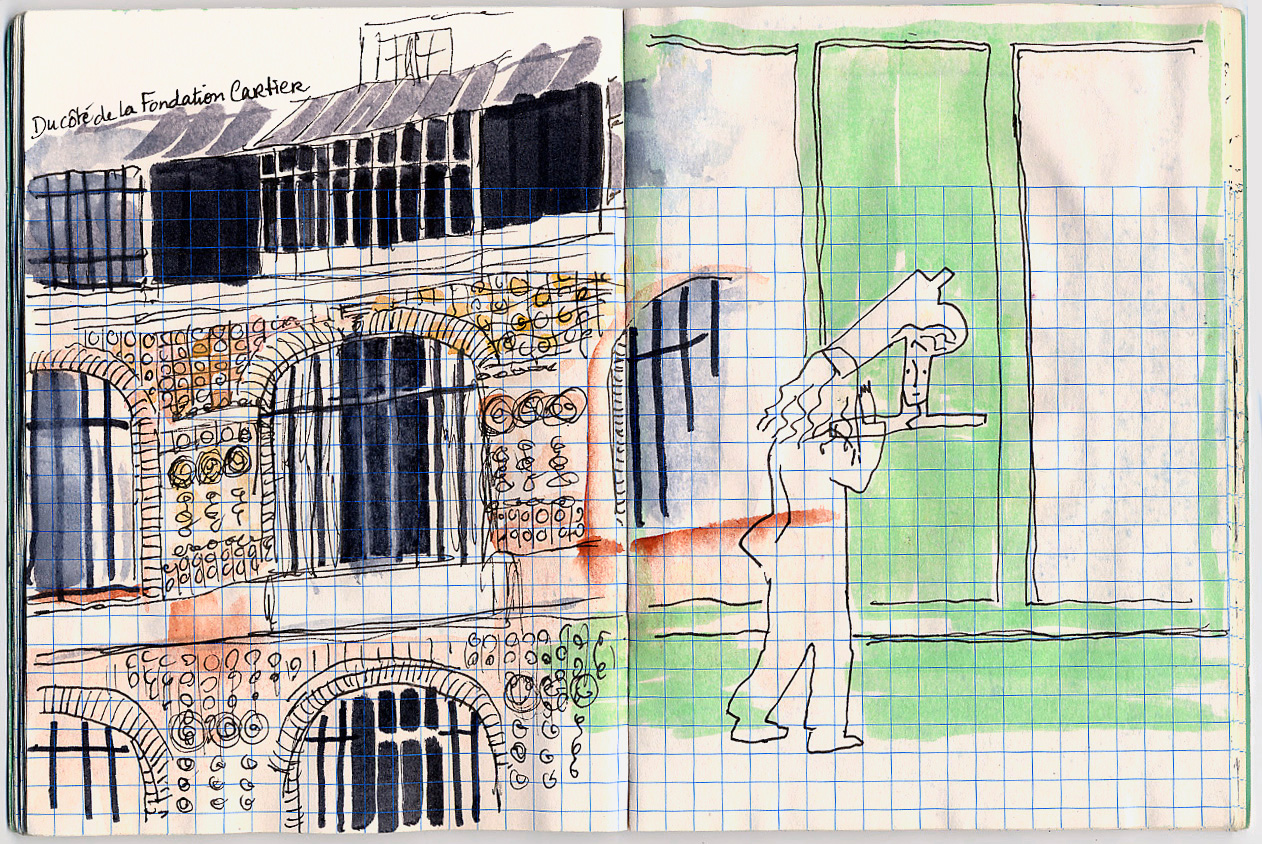 Du côté de la Fondation Cartier